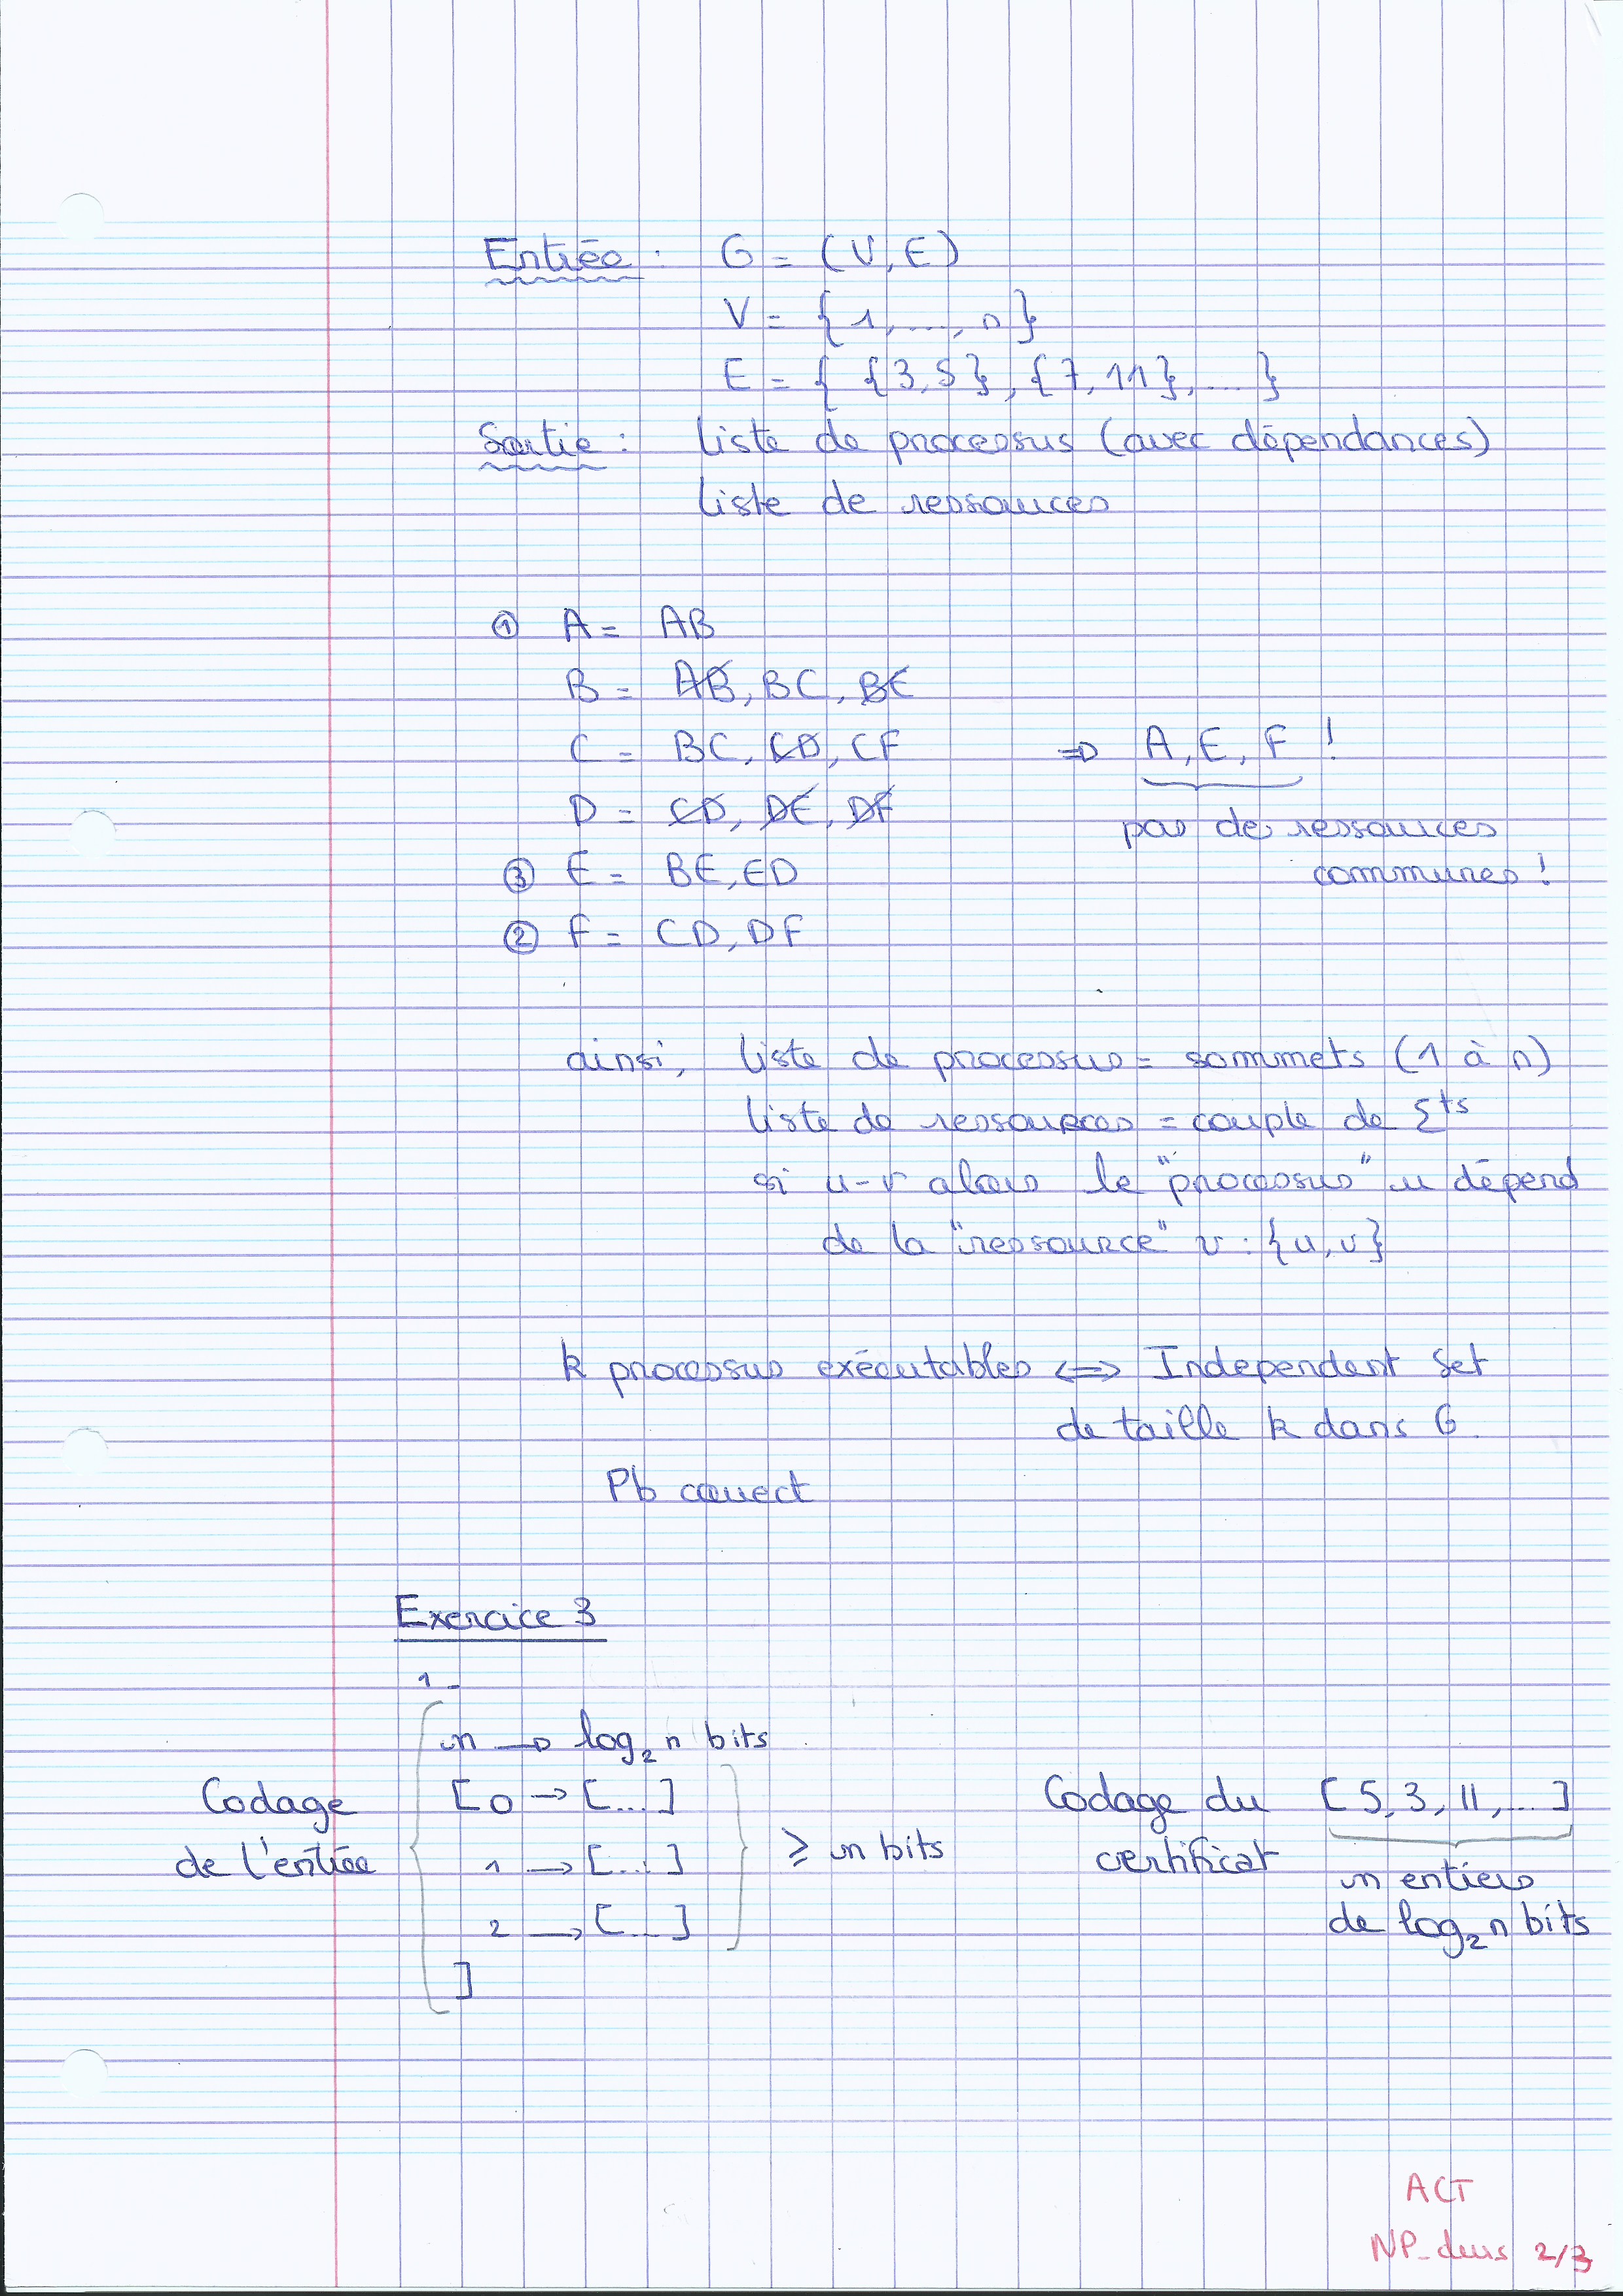 Entrée : G = (V, E)
V = { 1, ..., n }
E = { {3,5}, {7,11}, ... }
Sortie : liste de processus (avec dépendances)
liste de ressources
① A = AB
B = AB, BC, BE
C = BC, CD, CF
⇒ A, E, F !
D = CD, DE, DF
pas de ressources
communes !
③ E = BE, ED
② F = CD, DF
ainsi, liste de processus = sommets (1 à n)
liste de ressources = couple de Σts
si u-v alors le "processus" u dépend
de la "ressource" v : {u, v}
k processus exécutables ⟺ Independent Set
de taille k dans G.
Pb correct
Exercice 3
1_
n → log₂ n bits
Codage
de l'entrée
[ 0 → [...]
1 → [...]
2 → [...]
]
≥ n bits
Codage du
certificat
[ 5, 3, 11, ... ]
n entiers
de log₂ n bits
ACT
NP_deus 2/3